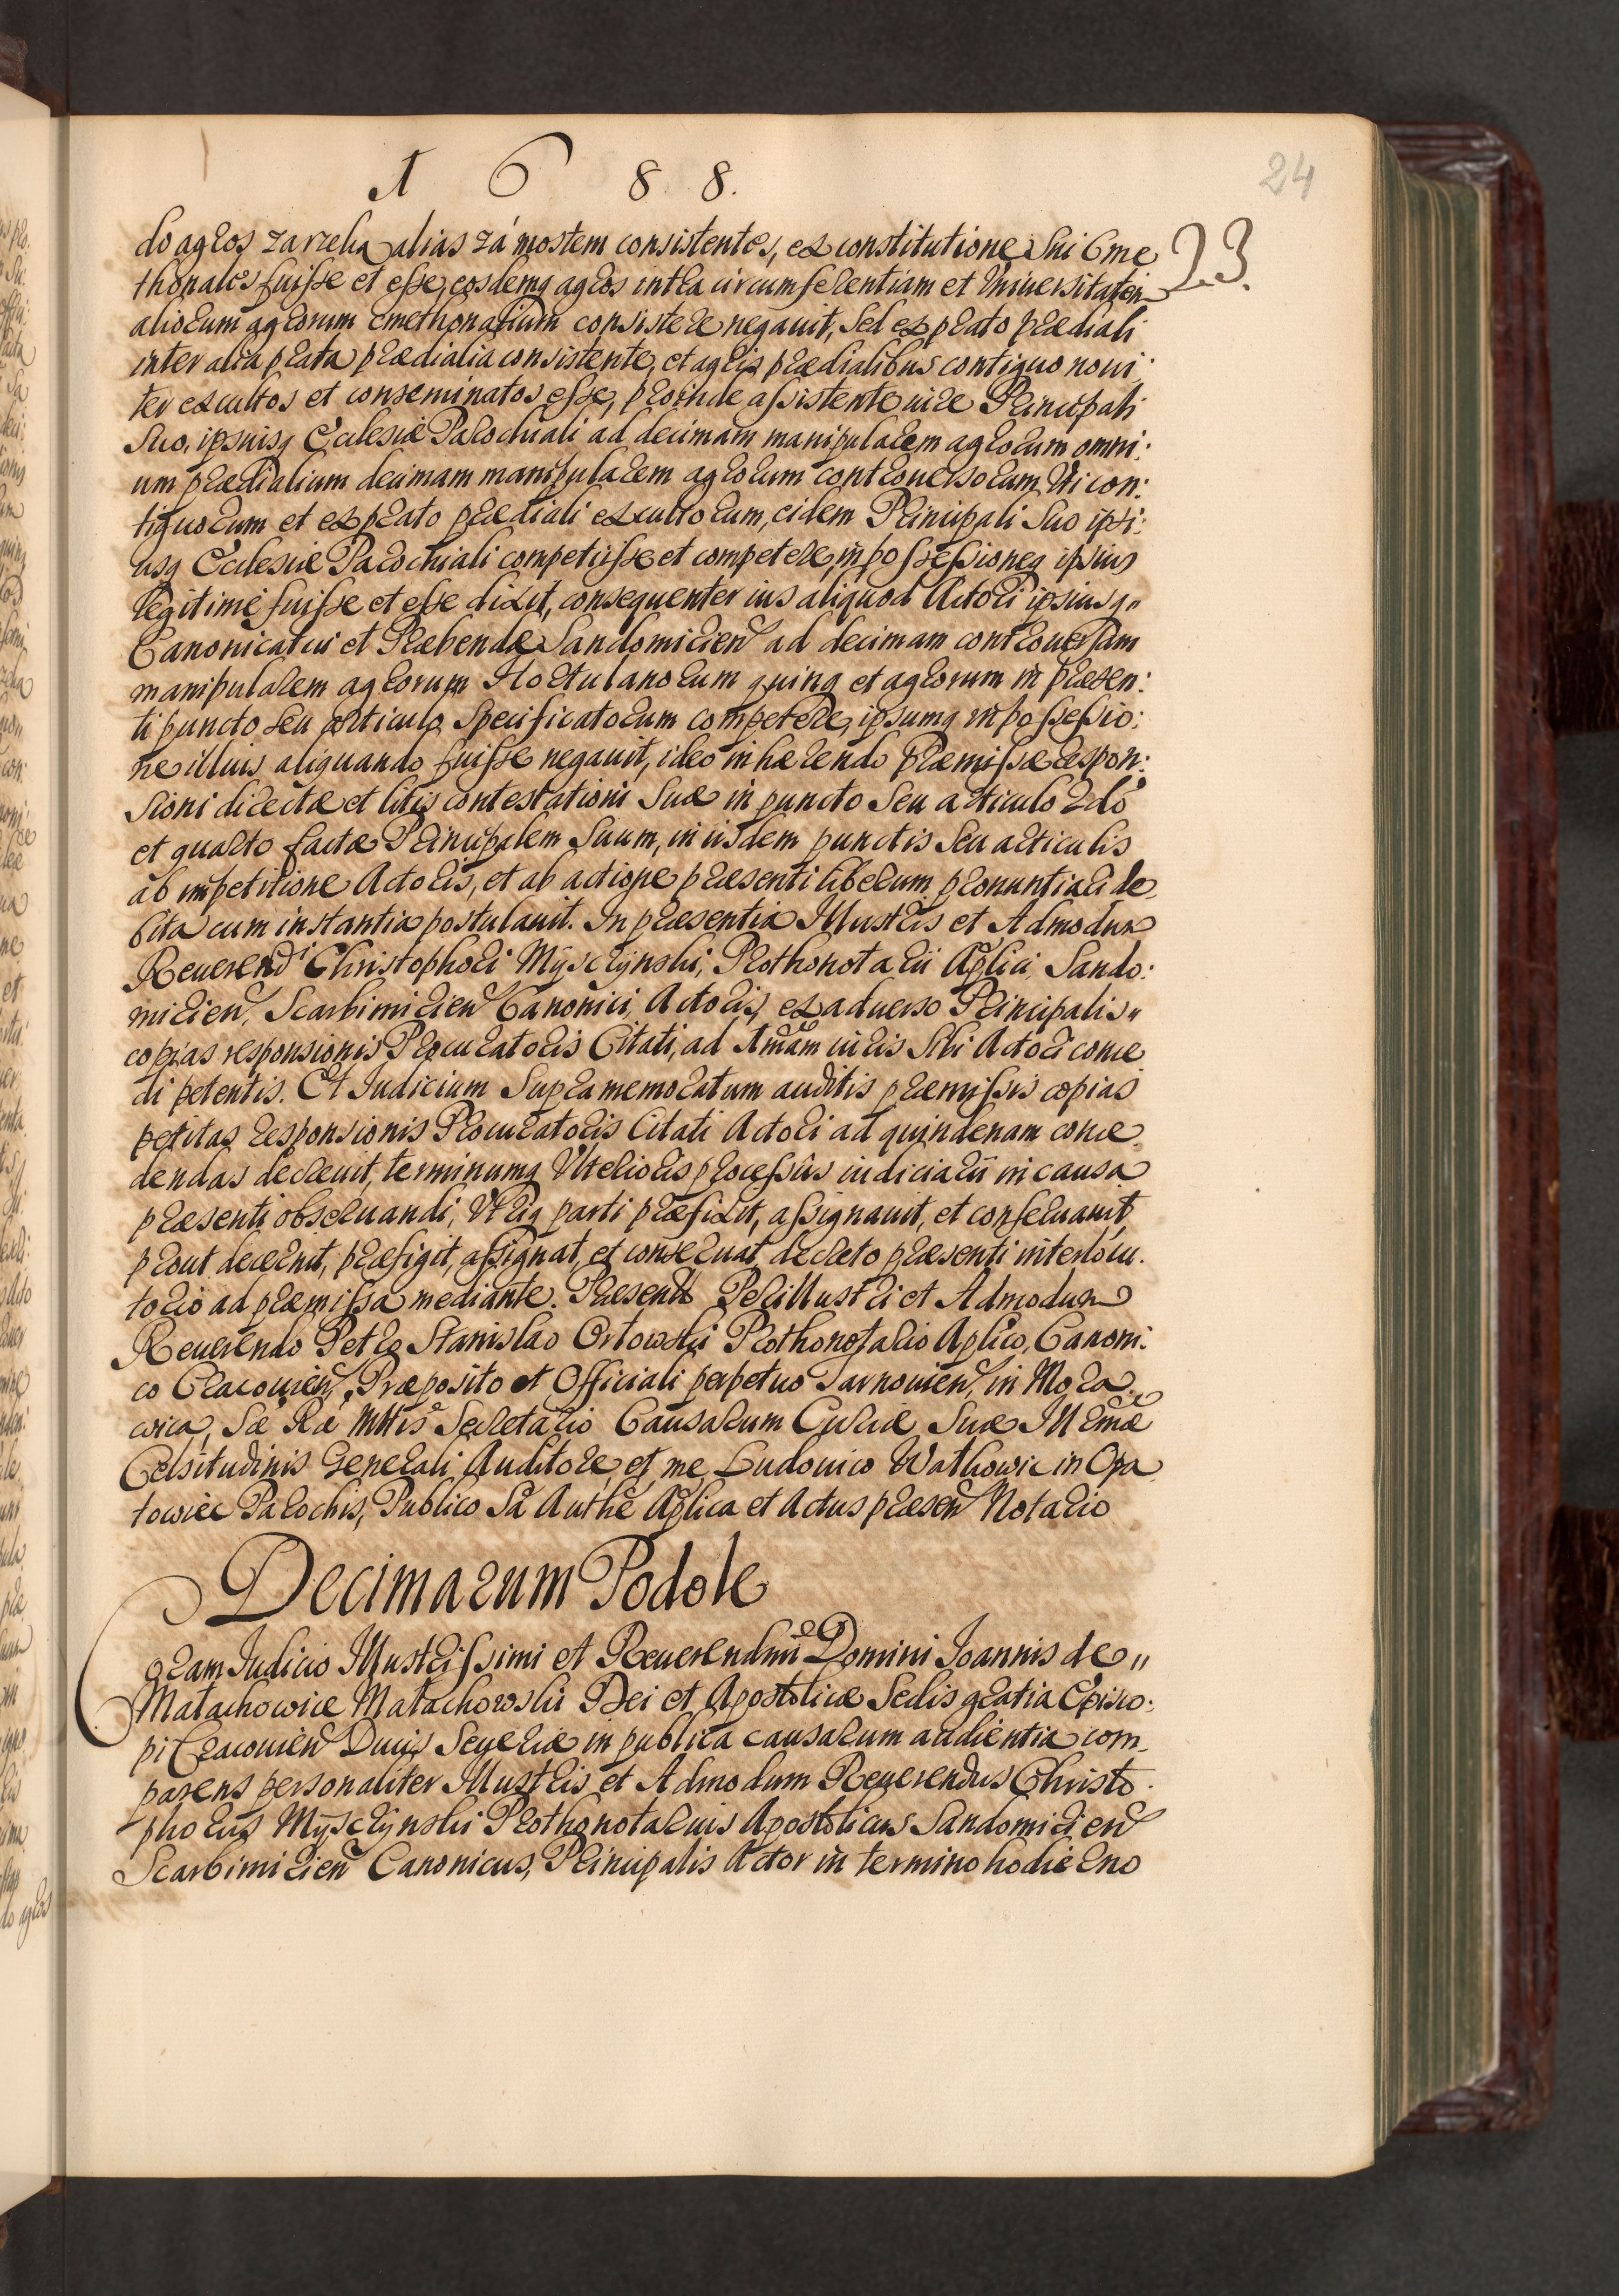 1 6 8 8.
24
23.
do agros zarzeka alias zá mostem consistentes, ex constitutione sui Cme
thonales fuisse et esse, eosdemq agros intra circumferentiam et Vniuersitatem
aliorum agrorum Cmethonalium consistere negauit, sed ex prato prædiali
inter alia prata prædialia consistente, et agris prædialibus contiguo noui:
ter excultos et conseminatos esse, proinde assistente iure Principali
suo, ipsiusq Ecclesiæ Parochiali ad decimam manipularem agrorum omni:
um prædialium decimam manipularem agrorum controuersorum Vti con:
tiguorum et ex prato prædiali excultorum, eidem Principali suo ipsi:
usq Ecclesiæ Parochiali competiisse et competere, in possessioneq ipsius
legitimé fuisse et esse dixit, consequenter ius aliquod Actori ipsiusq"
Canonicatui et Præbendæ Sandomirien ad decimam controuersam
manipularem agrorum Hortulanorum quinq et agrorum in præsen:
ti puncto seu articulo specificatorum competere, ipsumq in possessio:
ne illius aliquando fuisse negauit, ideo inhærendo præmissæ respon:
sioni directæ et litis contestationi suæ in puncto seu articulo 2do
et quarto factæ Principalem suum, in iisdem punctis seu articulis
ab impetitione Actoris, et ab actione præsenti liberum pronuntiari de
bita cum instantia postulauit. In præsentia Illustris et Admodum
Reuerendi Christophori Mysczynski, Prothonotarii Aplici, Sando:
mirien, Scarbimirien Canonici, Actoris, ex aduerso Principalis"
copias responsionis Procuratoris Citati, ad Amam iuris sibi Actori conce
di petentis. Et Iudicium supra memoratum auditis præmissis copias
petitas responsionis Procuratoris Citati Actori ad quindenam conce
dendas decreuit, terminumq Vlterioris processûs iudiciarii in causa
præsenti obseruandi, Vtriq parti præfixit, assignauit, et conseruauit,
prout decernit, præfigit, assignat, et conseruat, decreto præsenti interlocu.
torio ad præmissa mediante. Præsente Perillustri et Admodum
Reuerendo Petro Stanislao Orłowski Prothonotario Aplico, Canoni:
co Cracouien, Præposito et Officiali perpetuo Tarnouien, in Mora
wica, Sæ Ræ Mttis Secretario Causarum Curiæ Suæ Ill Rmæ
Celsitudinis Generali Auditore, et me Ludouico Wathowic in Opa
towiec Parochis, Publico Sa Authe Aplica et Actus præsen Notario
Decimarum Podole
Coram Iudicio Illustrissimi et Reuerendmi Domini Ioannis de"
Małachowice Małachowski Dei et Apostolicæ Sedis gratia Episco:
pi Cracouien Ducis Seueriæ in publica causarum audientia com
parens personaliter Illustris et Admodum Reuerendus Christo
phorus Mysczynski Prothonotarius Apostolicus Sandomirien
Scarbimirien Canonicus, Principalis Actor in termino hodierno